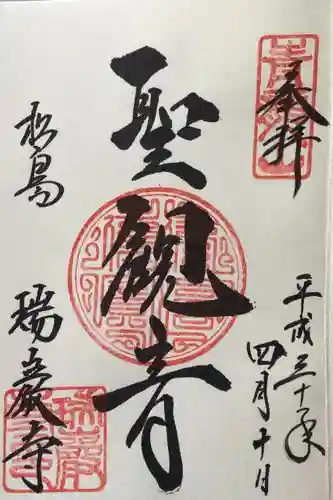 奉拝
平成三十年
四月十日
聖観音
松島
瑞巖寺